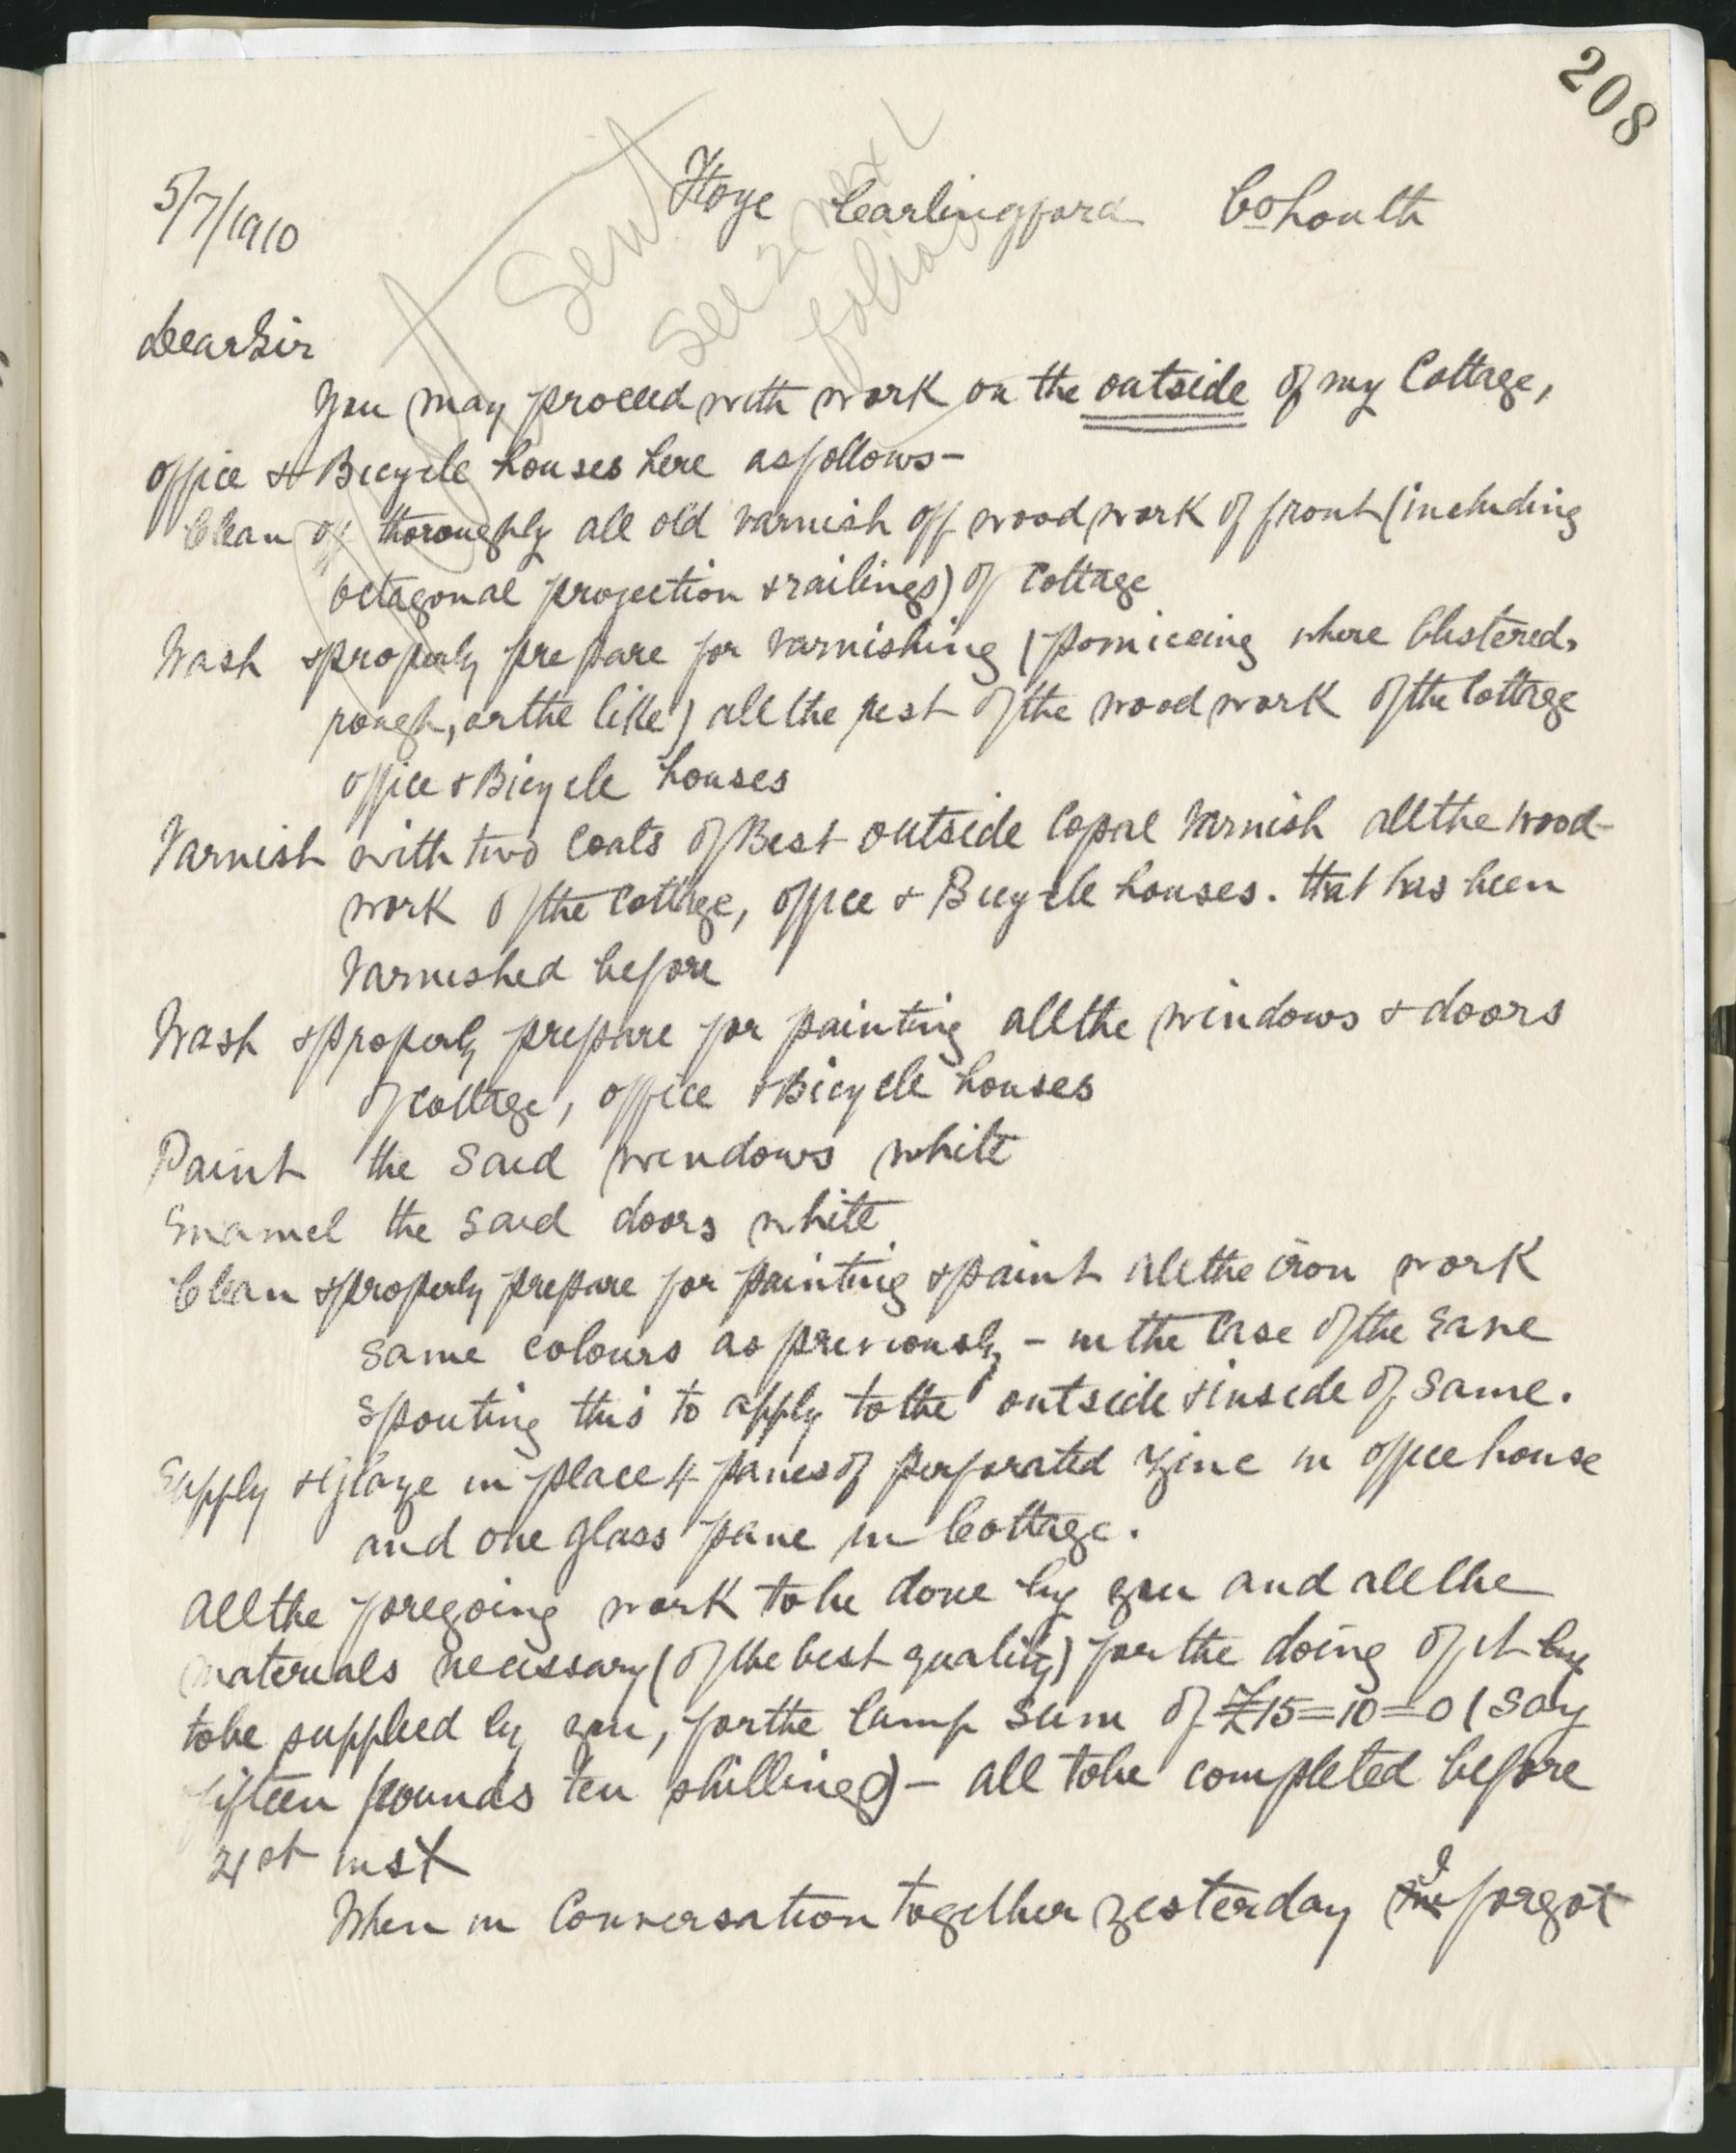 208
5/7/1910 Carlingford Co Louth
Not Sent
See 2 next
folios
Dear Sir
You may proceed with work on the outside of my Cottage,
office & Bicycle houses here as follows-
Clean off thoroughly all old varnish off wood work of front (including
octagonal projection & railings) of Cottage
Wash & properly prepare for varnishing (pomiceing where blistered,
rough, or the like) all the rest of the wood work of the Cottage
office & Bicycle houses
Varnish with two Coats of Best outside Copal Varnish all the wood-
work of the Cottage, office & Bicycle houses. that has been
Varnished before
Wash & properly prepare for painting all the windows & doors
of Cottage, office & Bicycle houses
Paint the said windows white
Enamel the said doors white
Clean & properly prepare for painting & paint all the iron work
same colours as previously - in the case of the Eave
spouting this to apply to the outside & inside of same.
Supply & Glaze in place 4 panes of perforated Zinc in office house
and one glass pane in Cottage.
All the foregoing work to be done by you and all the
materials necessary (of the best quality) for the doing of it by
to be supplied by you, for the lump sum of £15=10=0 (say
fifteen pounds ten shillings) - all to be completed before
21st inst
When in Conversation together yesterday I forgot